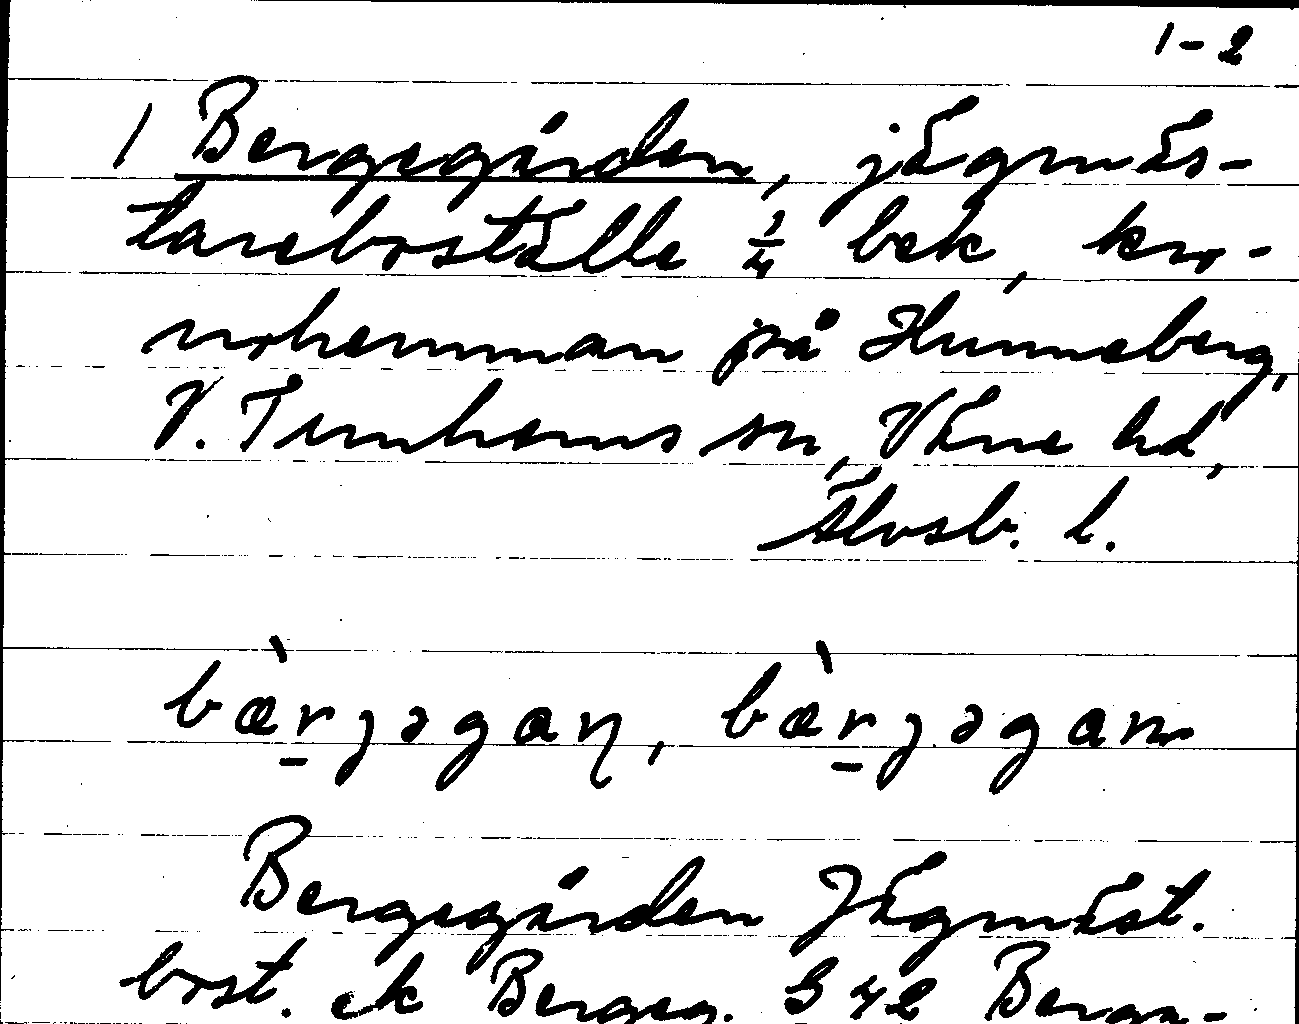 1-2
1 Bergegården, jägmäs-
tareboställe 1/4 bek, kro-
nohemman på Hunneberg,
V. Tunhems sn, Väne hd,
Älvsb. l.
bæ̀rjəgaɳ, bæ̀rjəgan
Bergegården Jägmäst.
bost. ek Bergeg. S 42